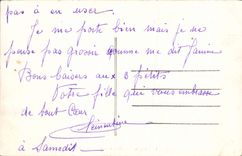 pas à en user
Je me porte bien mais je ne
pense pas grossir comme me dit Janine
Bons baisers aux 3 petits
Votre fille qui vous embrasse
de tout Cœur
à Samedi